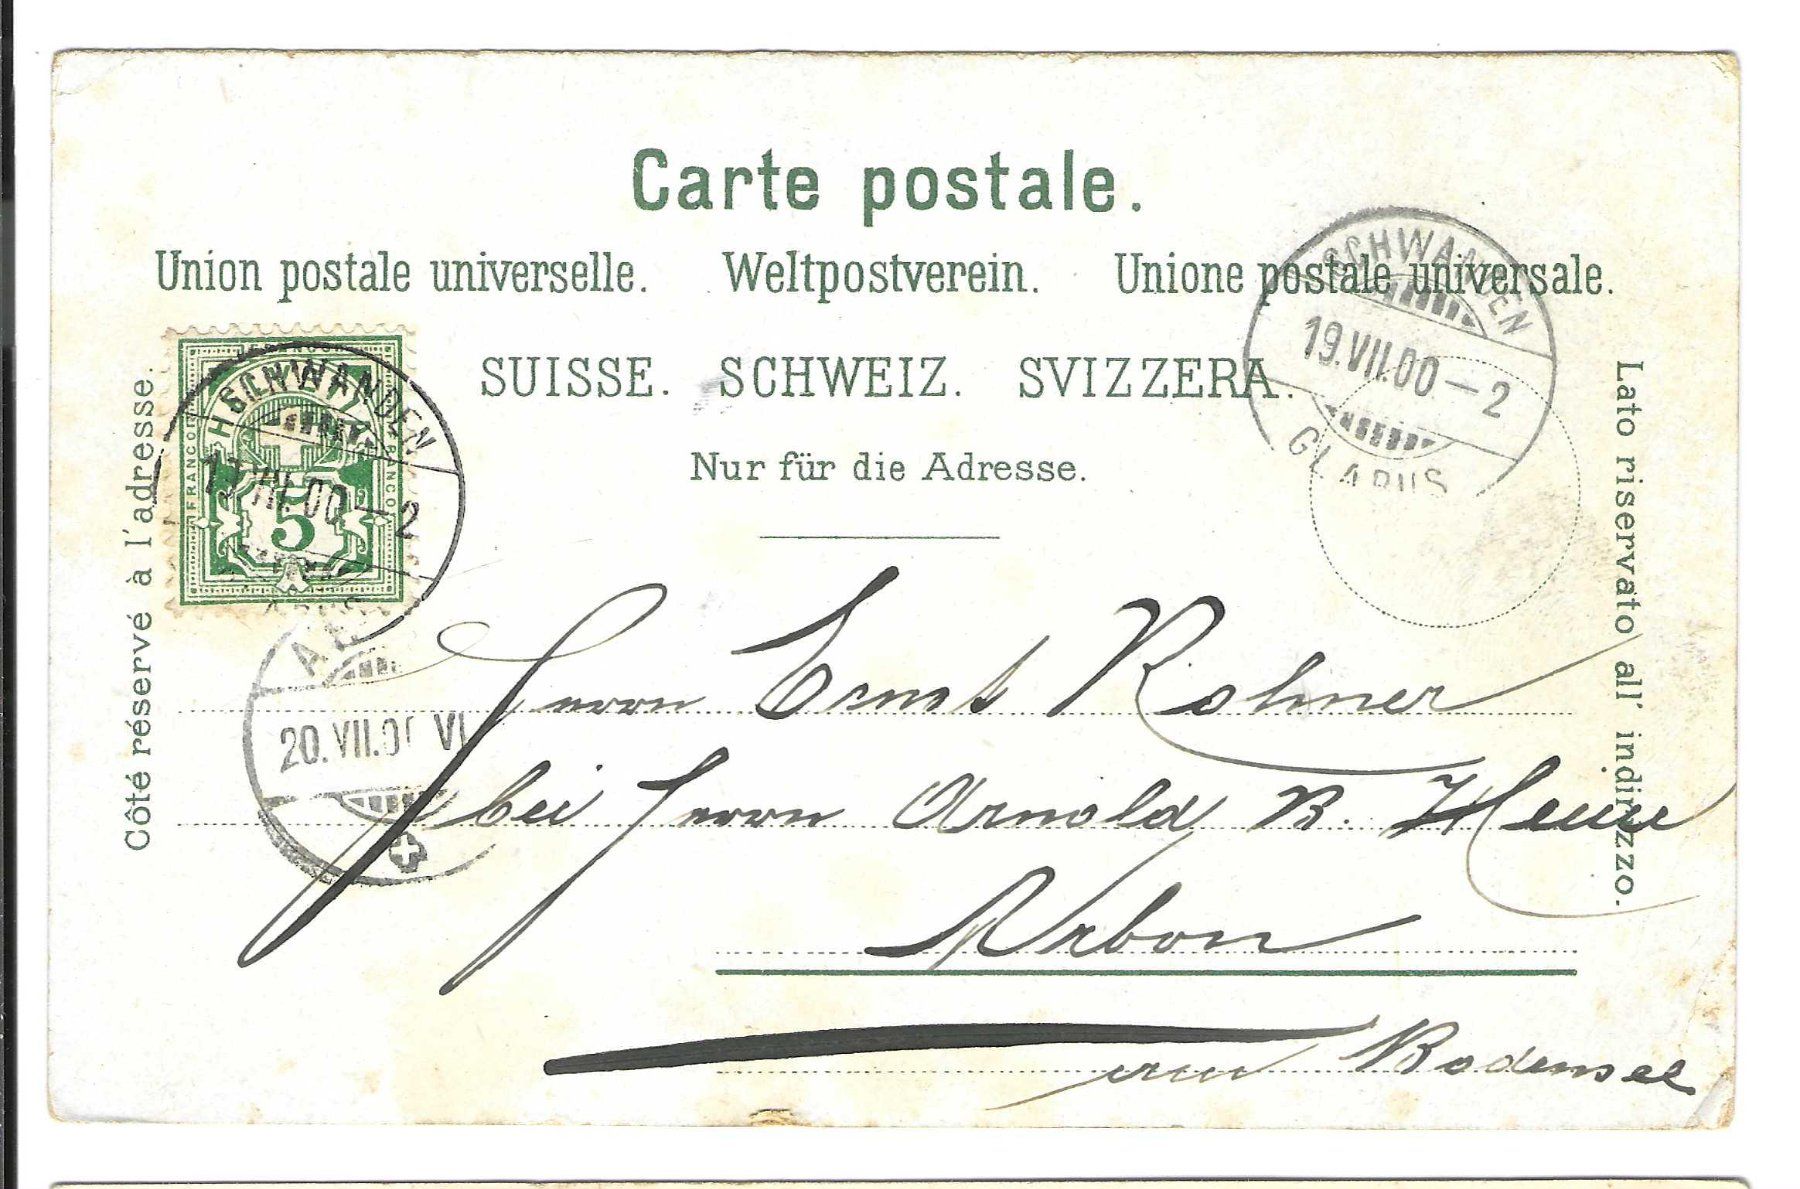 Carte postale.
Union postale universelle. Weltpostverein. Unione postale universale.
SUISSE. SCHWEIZ. SVIZZERA.
Nur für die Adresse.
Côté réservé à l'adresse.
Lato riservato all' indirizzo.
HELVETIA
FRANCO
FRANCO
5
SCHWANDEN
19.VII.00–2
SCHWANDEN
19.VII.00–2
GLARUS
20.VII.00 VI
Herrn Ernst Rohner
bei Herrn Arnold B. Heine
Arbon
am Bodensee